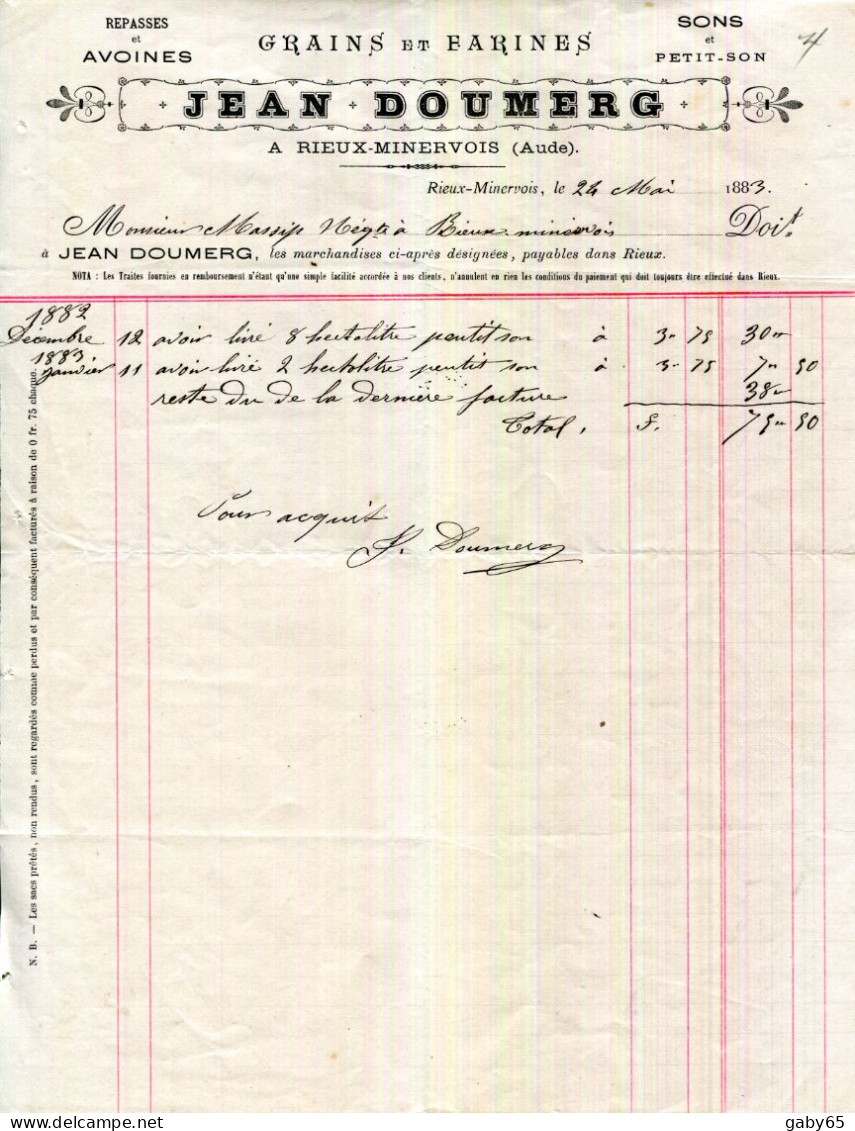 REPASSES
et
AVOINES
GRAINS ET FARINES
SONS
et
PETIT-SON
4
JEAN DOUMERG
A RIEUX-MINERVOIS (Aude).
Rieux-Minervois, le 24 Mai 1883.
Monsieur Massip Négt à Rieux minervois Doit
à JEAN DOUMERG, les marchandises ci-après désignées, payables dans Rieux.
NOTA : Les Traites fournies en remboursement n'étant qu'une simple facilité accordée à nos clients, n'annulent en rien les conditions du paiement qui doit toujours être effectué dans Rieux.
1882
Décembre 12 avoir livré 8 hectolitre peutit son à 3 75 30
1883
Janvier 11 avoir livré 2 hectolitre peutit son à 3 75 7 50
reste du de la dernière facture 38
Total. F. 75 50
Pour acquit
J. Doumerg
N. B. — Les sacs prêtés, non rendus, sont regardés comme perdus et par conséquent facturés à raison de 0 fr. 75 chaque.
gaby65